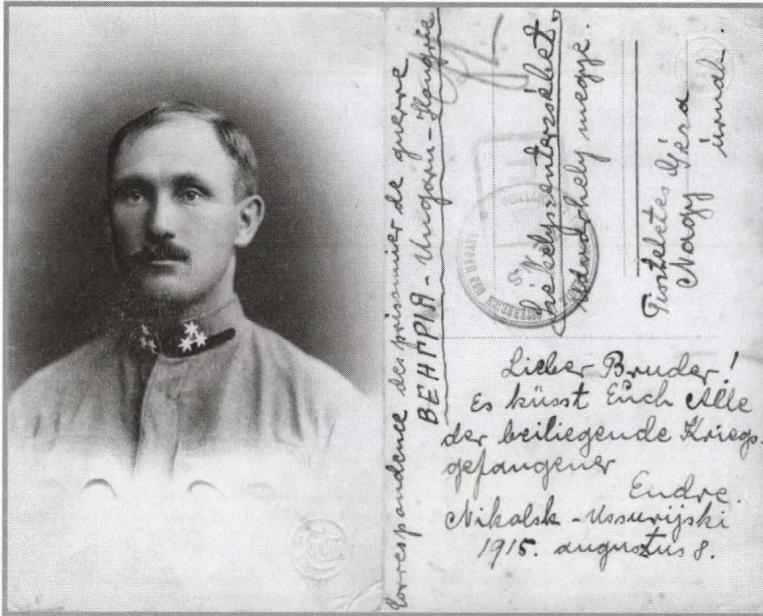 Correspondance des prisonnier de guerre
ВЕНГРІЯ - Ungarn - Hongrie
Székelyszenterzsébet
Udvarhely megye.
Tiszteletes Géza
Nagy úrnak.
Lieber Bruder!
Es küsst Euch Alle
der beiliegende Kriegs-
gefangener
Endre.
Nikolsk - Ussurijski
1915. augusztus 8.